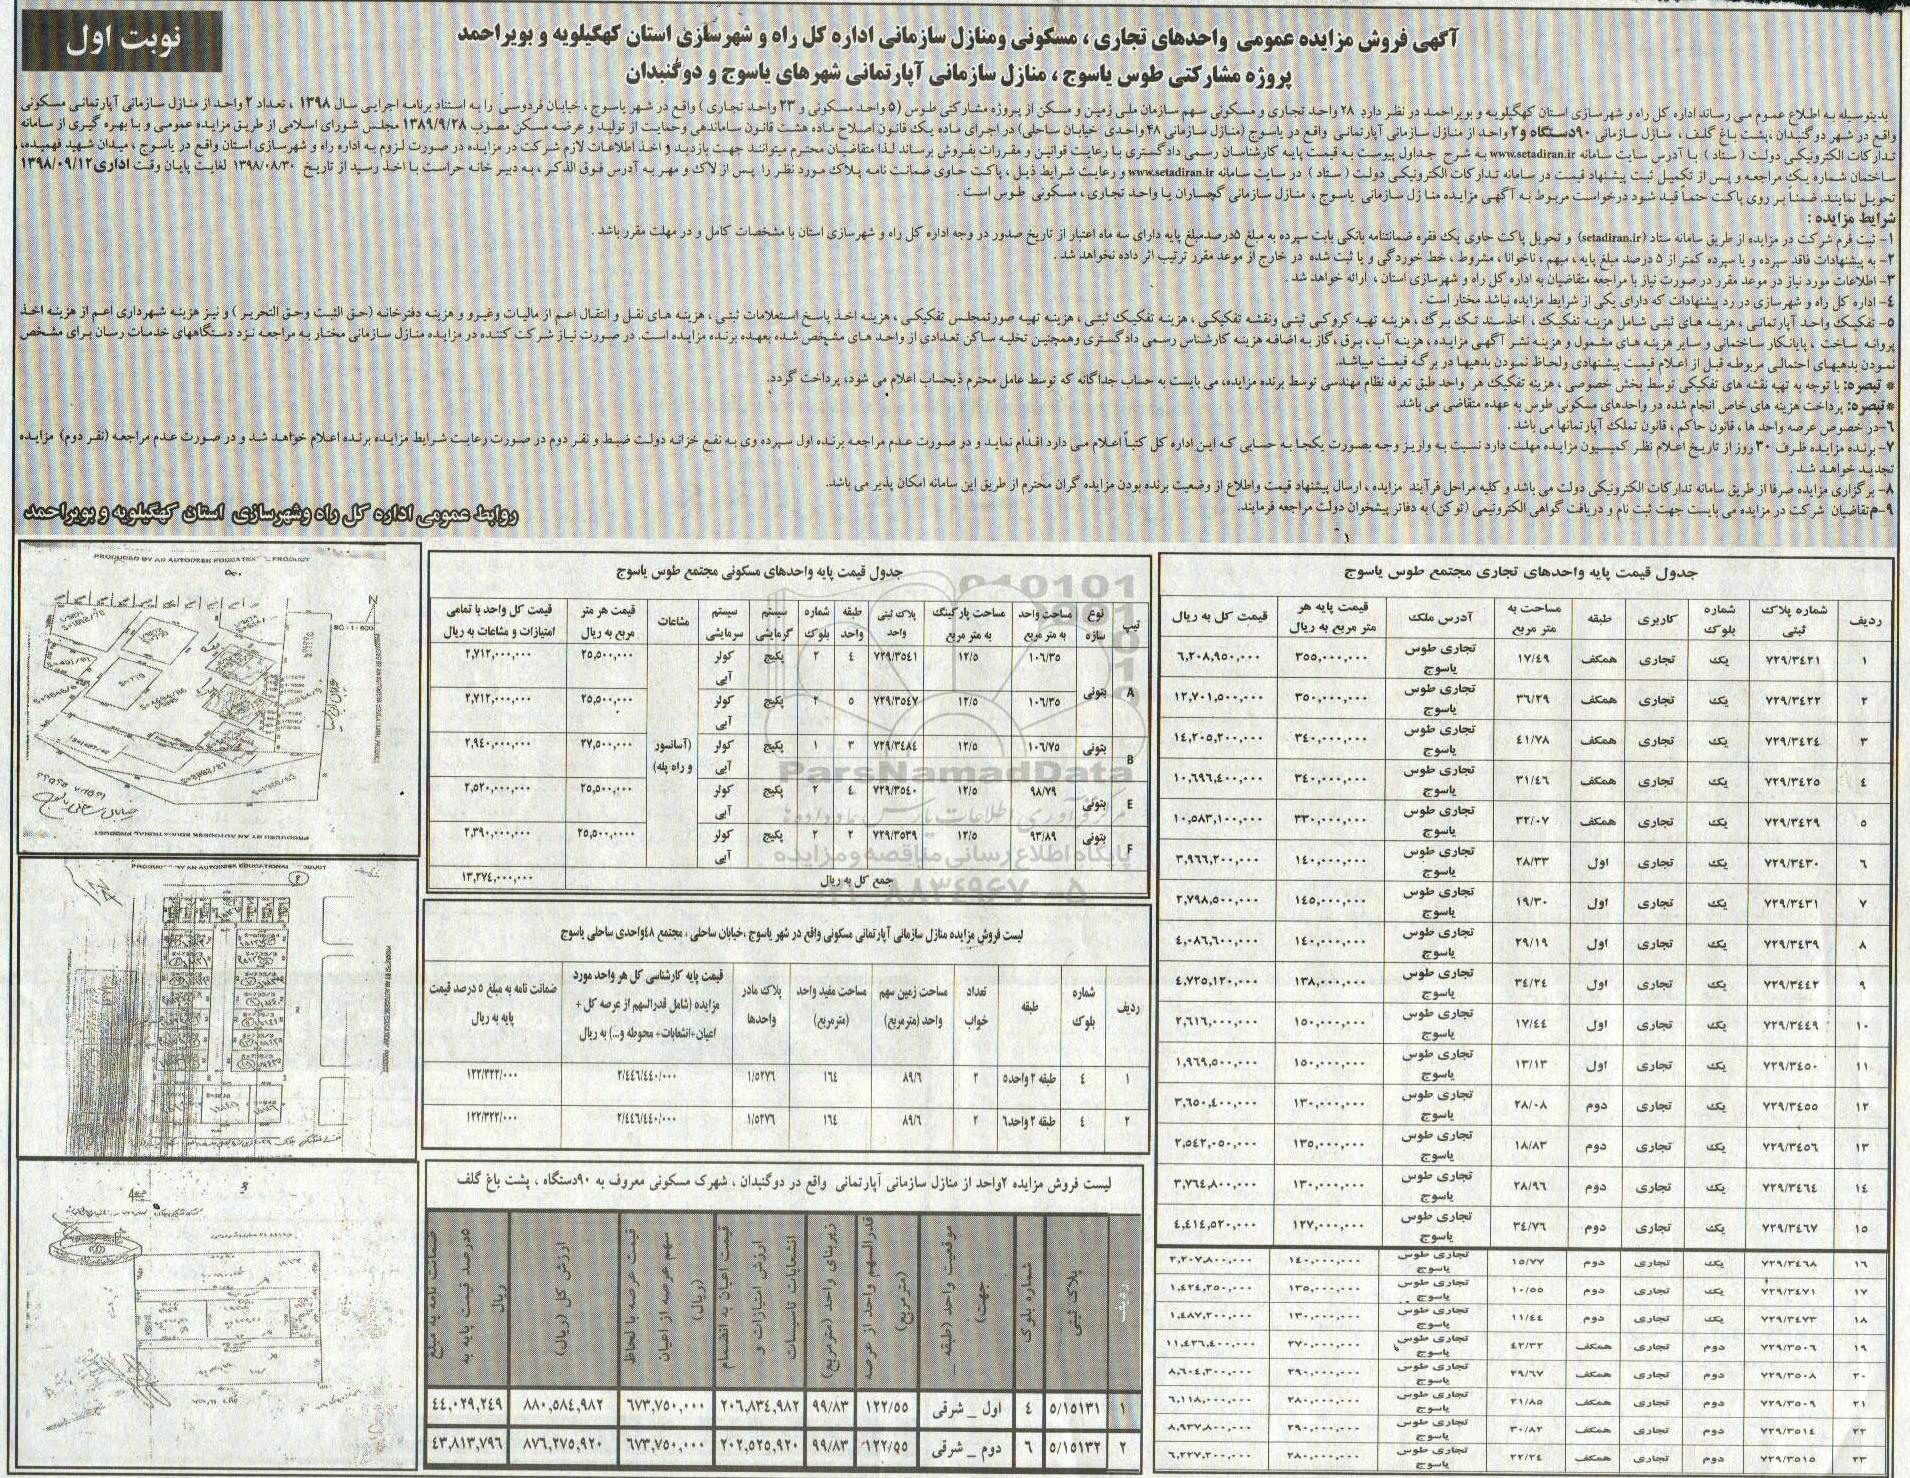 نوبت اول
آگهی فروش مزایده عمومی واحدهای تجاری ، مسکونی ومنازل سازمانی اداره کل راه و شهرسازی استان کهگیلویه و بویراحمد
پروژه مشارکتی طوس یاسوج ، منازل سازمانی آپارتمانی شهرهای یاسوج و دوگنبدان
بدینوسیله به اطلاع عموم می رساند اداره کل راه و شهرسازی استان کهگیلویه و بویراحمد در نظر دارد ۲۸ واحد تجاری و مسکونی سهم سازمان ملی زمین و مسکن از پروژه مشارکتی طوس (۵ واحد مسکونی و ۲۳ واحد تجاری) واقع در شهر یاسوج ، خیابان فردوسی را به استناد برنامه اجرایی سال ۱۳۹۸ ، تعداد ۲ واحد از منازل سازمانی آپارتمانی مسکونی
واقع در شهر دوگنبدان ،پشت باغ گلف ، منازل سازمانی ۹۰دستگاه و۲ واحد از منازل سازمانی آپارتمانی واقع در یاسوج (منازل سازمانی ۴۸ واحدی خیابان ساحلی) در اجرای ماده یک قانون اصلاح ماده هشت قانون ساماندهی وحمایت از تولید و عرضه مسکن مصوب ۱۳۸۹/۹/۲۸ مجلس شورای اسلامی از طریق مزایده عمومی و با بهره گیری از سامانه
تدارکات الکترونیکی دولت ( ستاد ) با آدرس سایت سامانه www.setadiran.ir به شرح جداول پیوست به قیمت پایه کارشناسان رسمی دادگستری با رعایت قوانین و مقررات بفروش برساند لذا متقاضیان محترم میتوانند جهت بازدید و اخذ اطلاعات لازم شرکت در مزایده در صورت لزوم به اداره راه و شهرسازی استان واقع در یاسوج ، میدان شهید فهمیده،
ساختمان شماره یک مراجعه و پس از تکمیل ثبت پیشنهاد قیمت در سامانه تدارکات الکترونیکی دولت ( ستاد ) در سایت سامانه www.setadiran.ir و رعایت شرایط ذیل ، پاکت حاوی ضمانت نامه پلاک مورد نظر را پس از لاک و مهر به آدرس فوق الذکر ، به دبیر خانه حراست با اخذ رسید از تاریخ ۱۳۹۸/۰۸/۳۰ لغایت پایان وقت اداری۱۳۹۸/۰۹/۱۲
تحویل نمایند. ضمناً بر روی پاکت حتماً قید شود درخواست مربوط به آگهی مزایده منازل سازمانی یاسوج ، منازل سازمانی گچساران یا واحد تجاری ، مسکونی طوس است .
شرایط مزایده :
۱- ثبت فرم شرکت در مزایده از طریق سامانه ستاد (setadiran.ir) و تحویل پاکت حاوی یک فقره ضمانتنامه بانکی بابت سپرده به مبلغ ۵درصدمبلغ پایه دارای سه ماه اعتبار از تاریخ صدور در وجه اداره کل راه و شهرسازی استان با مشخصات کامل و در مهلت مقرر باشد .
۲- به پیشنهادات فاقد سپرده و یا سپرده کمتر از ۵ درصد مبلغ پایه ، مبهم ، ناخوانا ، مشروط ، خط خوردگی و یا ثبت شده در خارج از موعد مقرر ترتیب اثر داده نخواهد شد .
۳- اطلاعات مورد نیاز در موعد مقرر در صورت نیاز با مراجعه متقاضیان به اداره کل راه و شهرسازی استان ، ارائه خواهد شد .
۴- اداره کل راه و شهرسازی در رد پیشنهادات که دارای یکی از شرایط مزایده نباشد مختار است .
۵- تفکیک واحد آپارتمانی ، هزینه های ثبتی شامل هزینه تفکیک ، اخذسند تک برگ ، هزینه تهیه کروکی ثبتی ونقشه تفکیکی ، هزینه تفکیک ثبتی ، هزینه تهیه صورتمجلس تفکیکی ، هزینه اخذ پاسخ استعلامات ثبتی ، هزینه های نقل و انتقال اعم از مالیات وغیرو و هزینه دفترخانه (حق الثبت وحق التحریر ) و نیز هزینه شهرداری اعم از هزینه اخذ
پروانه ساخت ، پایانکار ساختمانی و سایر هزینه های مشمول و هزینه نشر آگهی مزایده ، هزینه آب ، برق ،گاز به اضافه هزینه کارشناس رسمی دادگستری وهمچنین تخلیه ساکن تعدادی از واحد های مشخص شده بعهده برنده مزایده است. در صورت نیاز شرکت کننده در مزایده منازل سازمانی مختار به مراجعه نزد دستگاههای خدمات رسان برای مشخص
نمودن بدهیهای احتمالی مربوطه قبل از اعلام قیمت پیشنهادی ولحاظ نمودن بدهیها در برگه قیمت میباشد.
* تبصره: با توجه به تهیه نقشه های تفکیکی توسط بخش خصوصی ، هزینه تفکیک هر واحد طبق تعرفه نظام مهندسی توسط برنده مزایده، می بایست به حساب جداگانه که توسط عامل محترم ذیحساب اعلام می شود، پرداخت گردد.
*تبصره: پرداخت هزینه های خاص انجام شده در واحدهای مسکونی طوس به عهده متقاضی می باشد.
۶-در خصوص عرصه واحد ها ، قانون حاکم ، قانون تملک آپارتمانها می باشد .
۷- برنده مزایده ظرف ۳۰ روز از تاریخ اعلام نظر کمیسیون مزایده مهلت دارد نسبت به واریز وجه بصورت یکجا به حسابی که این اداره کل کتباً اعلام می دارد اقدام نماید و در صورت عدم مراجعه برنده اول سپرده وی به نفع خزانه دولت ضبط و نفر دوم در صورت رعایت شرایط مزایده برنده اعلام خواهد شد و در صورت عدم مراجعه (نفر دوم) مزایده
تجدید خواهد شد .
۸- برگزاری مزایده صرفا از طریق سامانه تدارکات الکترونیکی دولت می باشد و کلیه مراحل فرآیند مزایده ، ارسال پیشنهاد قیمت واطلاع از وضعیت برنده بودن مزایده گران محترم از طریق این سامانه امکان پذیر می باشد.
۹-متقاضیان شرکت در مزایده می بایست جهت ثبت نام و دریافت گواهی الکترونیمی (توکن) به دفاتر پیشخوان دولت مراجعه فرمایند.
روابط عمومی اداره کل راه وشهرسازی استان کهگیلویه و بویراحمد
جدول قیمت پایه واحدهای تجاری مجتمع طوس یاسوج
ردیف شماره پلاک ثبتی شماره بلوک کاربری طبقه مساحت به متر مربع آدرس ملک قیمت پایه هر متر مربع به ریال قیمت کل به ریال
۱ ۷۲۹/۳۴۲۱ یک تجاری همکف ۱۷/۴۹ تجاری طوس یاسوج ۳۵۵,۰۰۰,۰۰۰ ۶,۲۰۸,۹۵۰,۰۰۰
۲ ۷۲۹/۳۴۲۲ یک تجاری همکف ۳۶/۲۹ تجاری طوس یاسوج ۳۵۰,۰۰۰,۰۰۰ ۱۲,۷۰۱,۵۰۰,۰۰۰
۳ ۷۲۹/۳۴۲۴ یک تجاری همکف ۴۱/۷۸ تجاری طوس یاسوج ۳۴۰,۰۰۰,۰۰۰ ۱۴,۲۰۵,۲۰۰,۰۰۰
۴ ۷۲۹/۳۴۲۵ یک تجاری همکف ۳۱/۴۶ تجاری طوس یاسوج ۳۴۰,۰۰۰,۰۰۰ ۱۰,۶۹۶,۴۰۰,۰۰۰
۵ ۷۲۹/۳۴۲۹ یک تجاری همکف ۳۲/۰۷ تجاری طوس یاسوج ۳۳۰,۰۰۰,۰۰۰ ۱۰,۵۸۳,۱۰۰,۰۰۰
۶ ۷۲۹/۳۴۳۰ یک تجاری اول ۲۸/۳۳ تجاری طوس یاسوج ۱۴۰,۰۰۰,۰۰۰ ۳,۹۶۶,۲۰۰,۰۰۰
۷ ۷۲۹/۳۴۳۱ یک تجاری اول ۱۹/۳۰ تجاری طوس یاسوج ۱۴۵,۰۰۰,۰۰۰ ۲,۷۹۸,۵۰۰,۰۰۰
۸ ۷۲۹/۳۴۳۹ یک تجاری اول ۲۹/۱۹ تجاری طوس یاسوج ۱۴۰,۰۰۰,۰۰۰ ۴,۰۸۶,۶۰۰,۰۰۰
۹ ۷۲۹/۳۴۴۲ یک تجاری اول ۳۴/۲۴ تجاری طوس یاسوج ۱۳۸,۰۰۰,۰۰۰ ۴,۷۲۵,۱۲۰,۰۰۰
۱۰ ۷۲۹/۳۴۴۹ یک تجاری اول ۱۷/۴۴ تجاری طوس یاسوج ۱۵۰,۰۰۰,۰۰۰ ۲,۶۱۶,۰۰۰,۰۰۰
۱۱ ۷۲۹/۳۴۵۰ یک تجاری اول ۱۳/۱۳ تجاری طوس یاسوج ۱۵۰,۰۰۰,۰۰۰ ۱,۹۶۹,۵۰۰,۰۰۰
۱۲ ۷۲۹/۳۴۵۵ یک تجاری دوم ۲۸/۰۸ تجاری طوس یاسوج ۱۳۰,۰۰۰,۰۰۰ ۳,۶۵۰,۴۰۰,۰۰۰
۱۳ ۷۲۹/۳۴۵۶ یک تجاری دوم ۱۸/۸۳ تجاری طوس یاسوج ۱۳۵,۰۰۰,۰۰۰ ۲,۵۴۲,۰۵۰,۰۰۰
۱۴ ۷۲۹/۳۴۶۴ یک تجاری دوم ۲۸/۹۶ تجاری طوس یاسوج ۱۳۰,۰۰۰,۰۰۰ ۳,۷۶۴,۸۰۰,۰۰۰
۱۵ ۷۲۹/۳۴۶۷ یک تجاری دوم ۳۴/۷۶ تجاری طوس یاسوج ۱۲۷,۰۰۰,۰۰۰ ۴,۴۱۴,۵۲۰,۰۰۰
۱۶ ۷۲۹/۳۴۶۸ یک تجاری دوم ۱۵/۷۷ تجاری طوس یاسوج ۱۴۰,۰۰۰,۰۰۰ ۲,۲۰۷,۸۰۰,۰۰۰
۱۷ ۷۲۹/۳۴۷۱ یک تجاری دوم ۱۰/۵۵ تجاری طوس یاسوج ۱۳۵,۰۰۰,۰۰۰ ۱,۴۲۴,۲۵۰,۰۰۰
۱۸ ۷۲۹/۳۴۷۳ یک تجاری دوم ۱۱/۴۴ تجاری طوس یاسوج ۱۳۰,۰۰۰,۰۰۰ ۱,۴۸۷,۲۰۰,۰۰۰
۱۹ ۷۲۹/۳۵۰۶ دوم تجاری همکف ۴۲/۳۲ تجاری طوس یاسوج ۲۷۰,۰۰۰,۰۰۰ ۱۱,۴۲۶,۴۰۰,۰۰۰
۲۰ ۷۲۹/۳۵۰۸ دوم تجاری همکف ۲۹/۶۷ تجاری طوس یاسوج ۲۹۰,۰۰۰,۰۰۰ ۸,۶۰۴,۳۰۰,۰۰۰
۲۱ ۷۲۹/۳۵۰۹ دوم تجاری همکف ۲۱/۸۵ تجاری طوس یاسوج ۲۸۰,۰۰۰,۰۰۰ ۶,۱۱۸,۰۰۰,۰۰۰
۲۲ ۷۲۹/۳۵۱۴ دوم تجاری همکف ۳۰/۸۲ تجاری طوس یاسوج ۲۹۰,۰۰۰,۰۰۰ ۸,۹۳۷,۸۰۰,۰۰۰
۲۳ ۷۲۹/۳۵۱۵ دوم تجاری همکف ۲۲/۲۴ تجاری طوس یاسوج ۲۸۰,۰۰۰,۰۰۰ ۶,۲۲۷,۲۰۰,۰۰۰
جدول قیمت پایه واحدهای مسکونی مجتمع طوس یاسوج
تیپ نوع سازه مساحت واحد به متر مربع مساحت پارکینگ به متر مربع پلاک ثبتی واحد طبقه واحد شماره بلوک سیستم گرمایشی سیستم سرمایشی مشاعات قیمت هر متر مربع به ریال قیمت کل واحد با تمامی امتیازات و مشاعات به ریال
A بتونی ۱۰۶/۳۵ ۱۲/۵ ۷۲۹/۳۵۴۱ ۴ ۲ پکیج کولر آبی ۲۵,۵۰۰,۰۰۰ ۲,۷۱۲,۰۰۰,۰۰۰
۱۰۶/۳۵ ۱۲/۵ ۷۲۹/۳۵۴۷ ۵ ۲ پکیج کولر آبی ۲۵,۵۰۰,۰۰۰ ۲,۷۱۲,۰۰۰,۰۰۰
B بتونی ۱۰۶/۷۵ ۱۲/۵ ۷۲۹/۳۴۸۴ ۳ ۱ پکیج کولر آبی (آسانسور و راه پله) ۲۷,۵۰۰,۰۰۰ ۲,۹۴۰,۰۰۰,۰۰۰
E بتونی ۹۸/۷۹ ۱۲/۵ ۷۲۹/۳۵۴۰ ۴ ۲ پکیج کولر آبی ۲۵,۵۰۰,۰۰۰ ۲,۵۲۰,۰۰۰,۰۰۰
F بتونی ۹۳/۸۹ ۱۲/۵ ۷۲۹/۳۵۳۹ ۲ ۲ پکیج کولر آبی ۲۵,۵۰۰,۰۰۰۰ ۲,۳۹۰,۰۰۰,۰۰۰
جمع کل به ریال ۱۳,۲۷۴,۰۰۰,۰۰۰
لیست فروش مزایده منازل سازمانی آپارتمانی مسکونی واقع در شهر یاسوج ،خیابان ساحلی ، مجتمع ۴۸واحدی ساحلی یاسوج
ردیف شماره بلوک طبقه تعداد خواب مساحت زمین سهم واحد (مترمربع) مساحت مفید واحد (مترمربع) پلاک مادر واحدها قیمت پایه کارشناسی کل هر واحد مورد مزایده (شامل قدرالسهم از عرصه کل + اعیان+انشعابات+ محوطه و...) به ریال ضمانت نامه به مبلغ ۵ درصد قیمت پایه به ریال
۱ ۴ طبقه ۲ واحد۵ ۲ ۸۹/۶ ۱۶۴ ۱/۵۲۷۶ ۲/۴۴۶/۴۴۰/۰۰۰ ۱۲۲/۳۲۲/۰۰۰
۲ ۴ طبقه ۲ واحد۶ ۲ ۸۹/۶ ۱۶۴ ۱/۵۲۷۶ ۲/۴۴۶/۴۴۰/۰۰۰ ۱۲۲/۳۲۲/۰۰۰
لیست فروش مزایده ۲واحد از منازل سازمانی آپارتمانی واقع در دوگنبدان ، شهرک مسکونی معروف به ۹۰دستگاه ، پشت باغ گلف
ردیف پلاک ثبتی شماره بلوک موقعیت واحد (طبقه _ جهت) قدرالسهم واحد از عرصه (مترمربع) زیربنای واحد (مترمربع) قیمت اعیان به انضمام ارزش امتیازات و انشعابات تاسیسات (ریال) قیمت عرصه با لحاظ سهم عرصه از اعیان ارزش کل (ریال) ضمانت نامه به مبلغ ۵درصد قیمت پایه به ریال
۱ ۵/۱۵۱۳۱ ۴ اول _ شرقی ۱۲۲/۵۵ ۹۹/۸۳ ۲۰۶,۸۳۴,۹۸۲ ۶۷۳,۷۵۰,۰۰۰ ۸۸۰,۵۸۴,۹۸۲ ۴۴,۰۲۹,۲۴۹
۲ ۵/۱۵۱۳۲ ۶ دوم _ شرقی ۱۲۲/۵۵ ۹۹/۸۳ ۲۰۲,۵۲۵,۹۲۰ ۶۷۳,۷۵۰,۰۰۰ ۸۷۶,۲۷۵,۹۲۰ ۴۳,۸۱۳,۷۹۶
PRODUCED BY AN AUTODESK EDUCATIONAL PRODUCT
ParsNamadData
پایگاه اطلاع رسانی مناقصه و مزایده